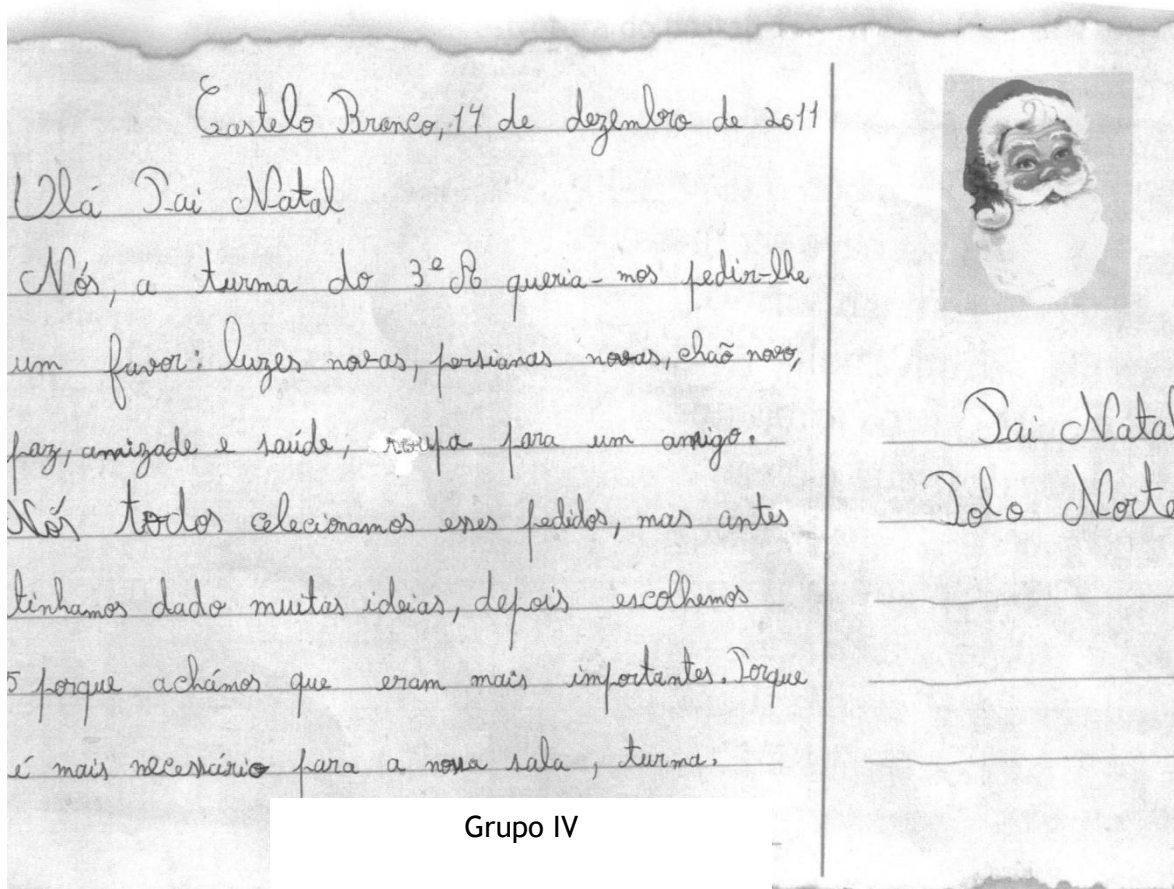 Castelo Branco, 14 de dezembro de 2011
Olá Pai Natal
Nós, a turma do 3º A queria-mos pedir-lhe
um favor: luzes novas, persianas novas, chaõ novo,
paz, amizade e saúde, roupa para um amigo.
Nós todos celecionamos esses pedidos, mas antes
tinhamos dado muitas ideias, depois escolhemos
5 porque achámos que eram mais importantes. Porque
é mais necessário para a nossa sala, turma.
Pai Natal
Polo Norte
Grupo IV